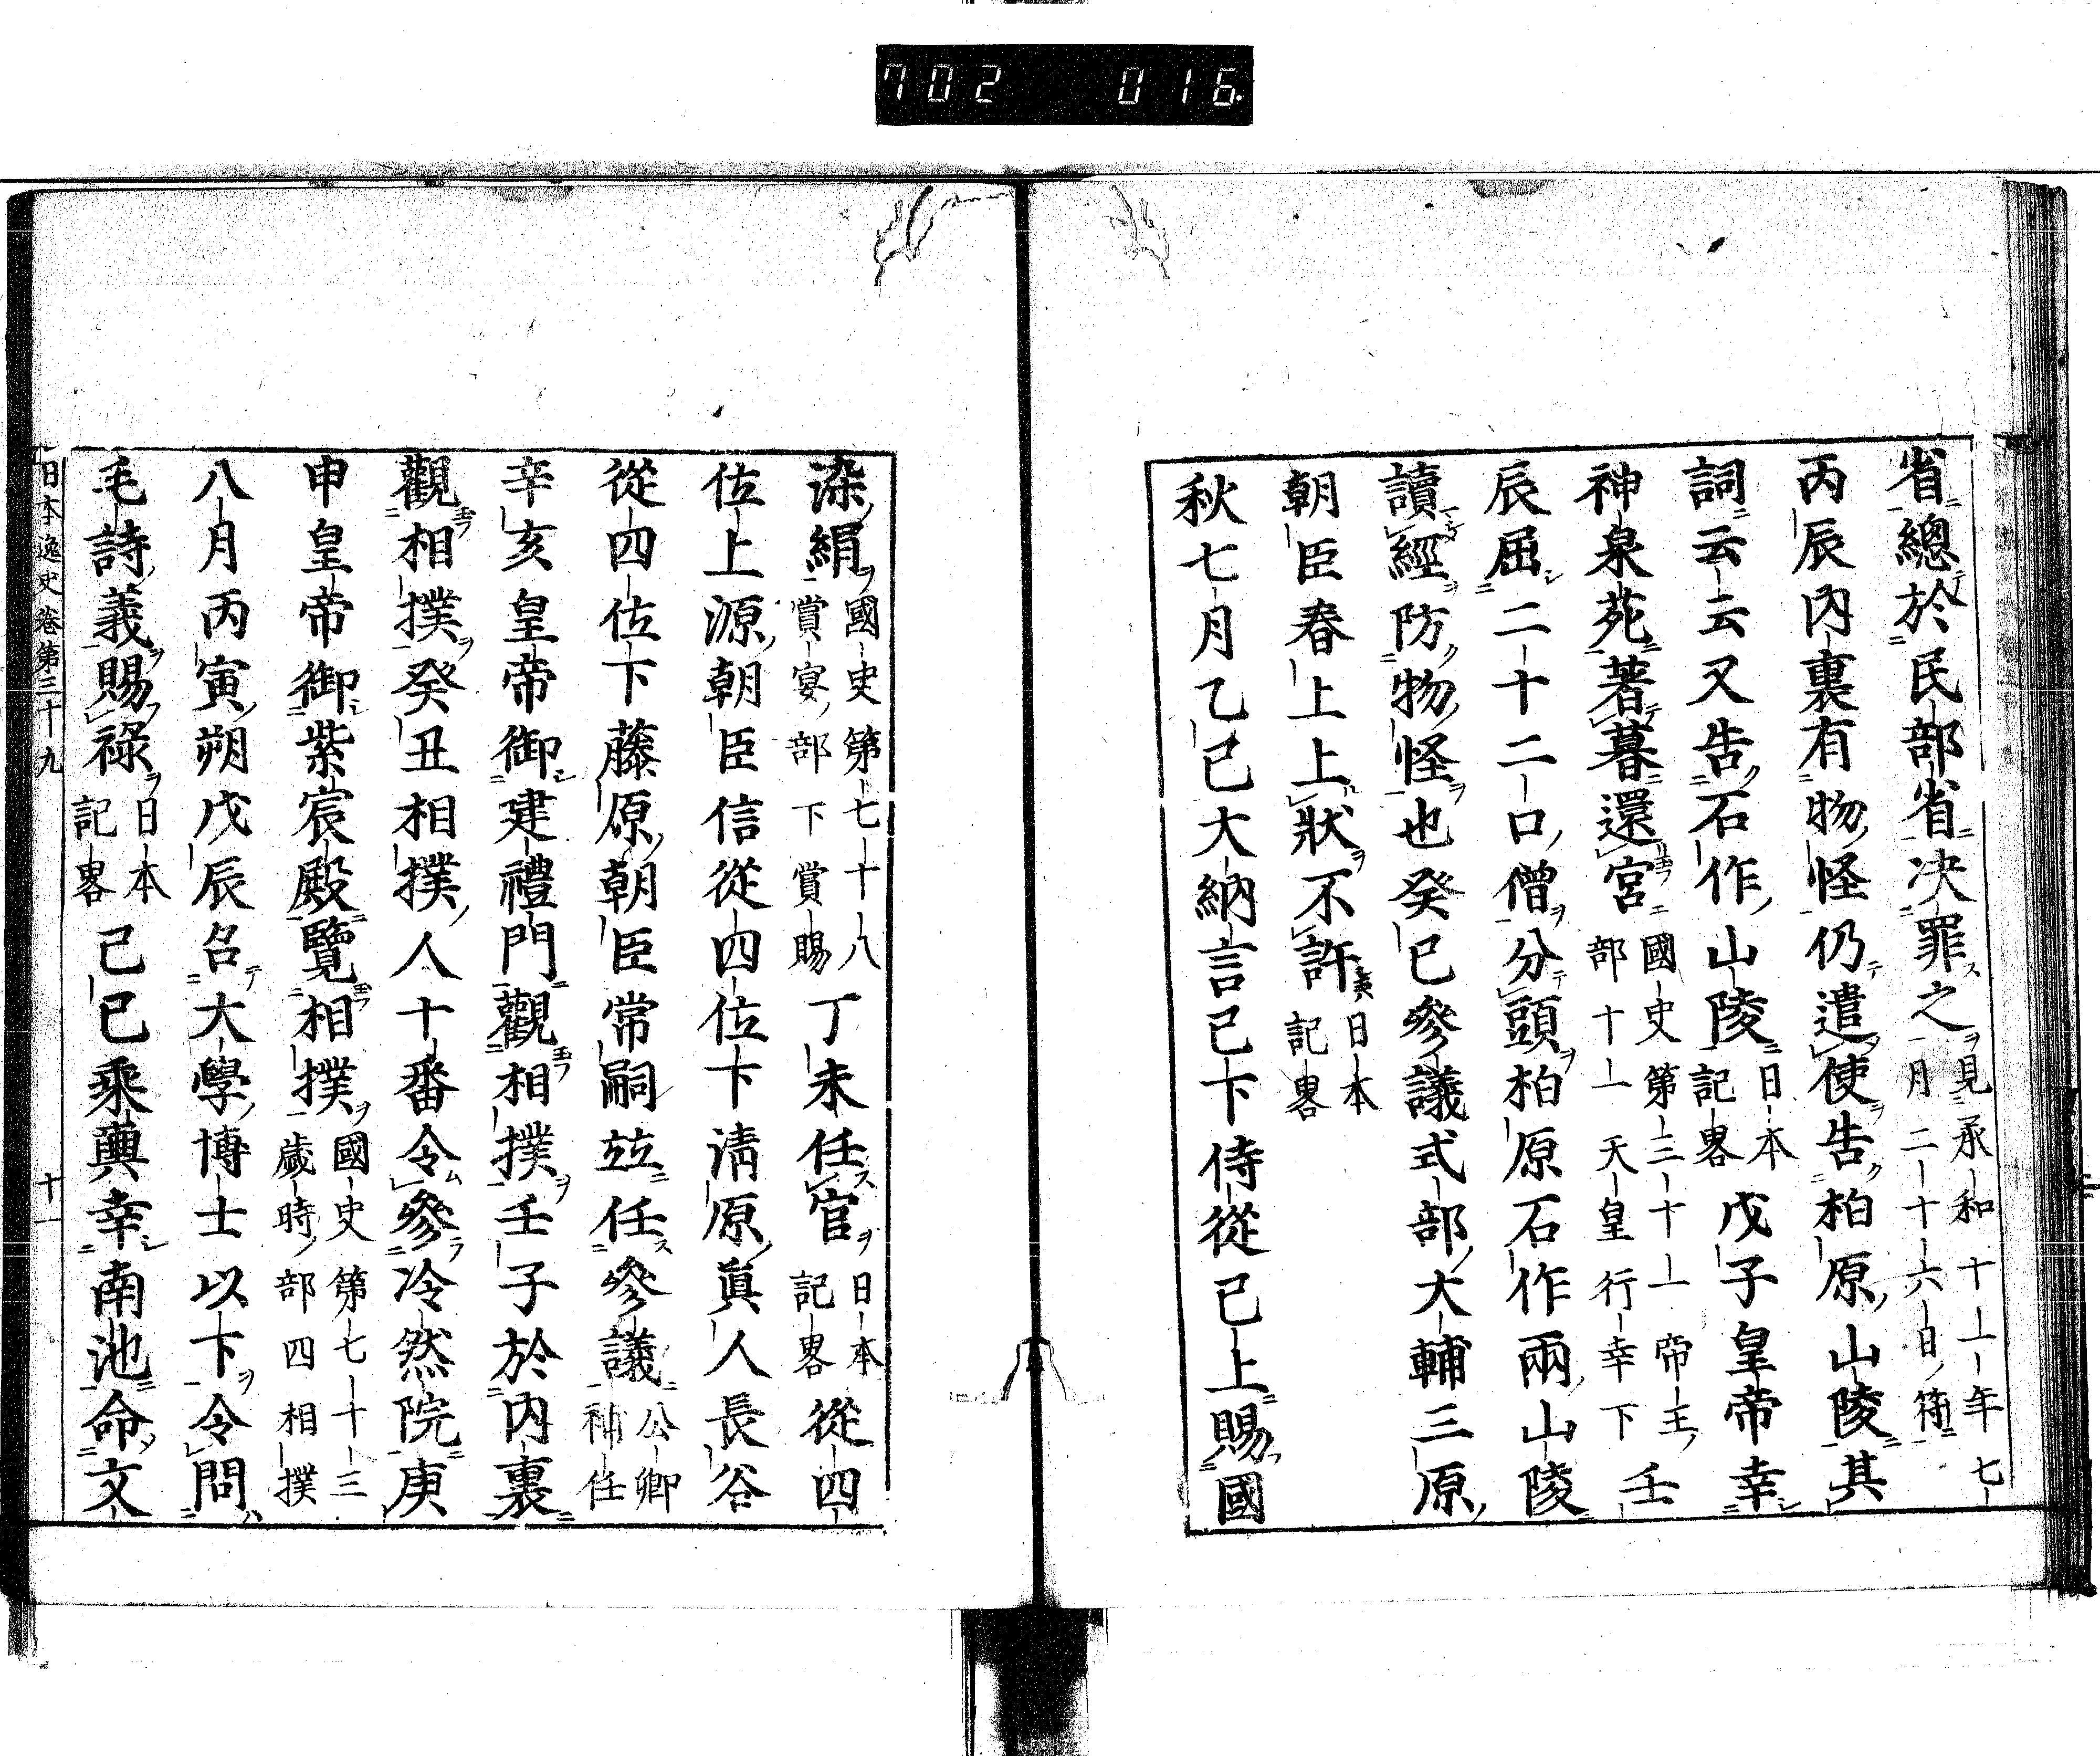 702 016
省總於民部省決罪之見承和十一年七月二十六日符
丙辰內裏有物怪仍遣使告柏原山陵其
詞云云又告石作山陵日本記畧戊子皇帝幸
神泉苑著暮還宮國史第三十一帝王部十一天皇行幸下壬
辰屈二十二口僧分頭柏原石作兩山陵
讀經防物怪也癸巳參議式部大輔三原
朝臣春上上狀不許日本記畧
秋七月乙巳大納言已下侍從已上賜國
染絹國史第七十八賞宴部下賞賜丁未任官日本記畧從四
位上源朝臣信從四位下淸原眞人長谷
從四位下藤原朝臣常嗣竝任參議公卿補任
辛亥皇帝御建禮門觀相撲壬子於內裏
觀相撲癸丑相撲人十番令參冷然院庚
申皇帝御紫宸殿覽相撲國史第七十三歲時部四相撲
八月丙寅朔戊辰名大學博士以下令問
毛詩義賜祿日本記畧己巳乘輿幸南池命文
日本逸史卷第三十九 十一